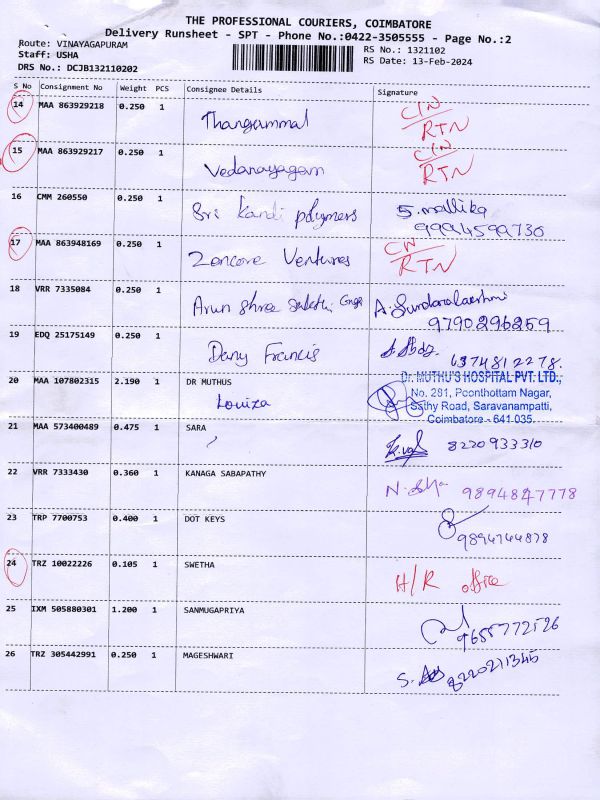 THE PROFESSIONAL COURIERS, COIMBATORE
Delivery Runsheet - SPT - Phone No.:0422-3505555 - Page No.:2
Route: VINAYAGAPURAM RS No.: 1321102
Staff: USHA RS Date: 13-Feb-2024
DRS No.: DCJB132110202
S No Consignment No Weight PCS Consignee Details Signature
14 MAA 863929218 0.250 1 Thangammal
RTN
15 MAA 863929217 0.250 1 Vedanayagam
RTN
16 CMM 260550 0.250 1 Sri Kandi polymers S. mallika
9994599730
17 MAA 863948169 0.250 1 Zencore Ventures
RTN
18 VRR 7335084 0.250 1 Arun Shree Sakthi A. Sundaralakshmi
9790296259
19 EDQ 25175149 0.250 1 Dany Francis
6374812278.
20 MAA 107802315 2.190 1 DR MUTHUS Dr. MUTHU'S HOSPITAL PVT. LTD.,
Louiza No. 281, Poonthottam Nagar,
Sathy Road, Saravanampatti,
Coimbatore - 641 035.
21 MAA 573400489 0.475 1 SARA 8220933310
22 VRR 7333430 0.360 1 KANAGA SABAPATHY 9894847778
23 TRP 7700753 0.400 1 DOT KEYS
9894744878
24 TRZ 10022226 0.105 1 SWETHA H/R office
25 IXM 505880301 1.200 1 SANMUGAPRIYA 9655772526
26 TRZ 305442991 0.250 1 MAGESHWARI 8220211345